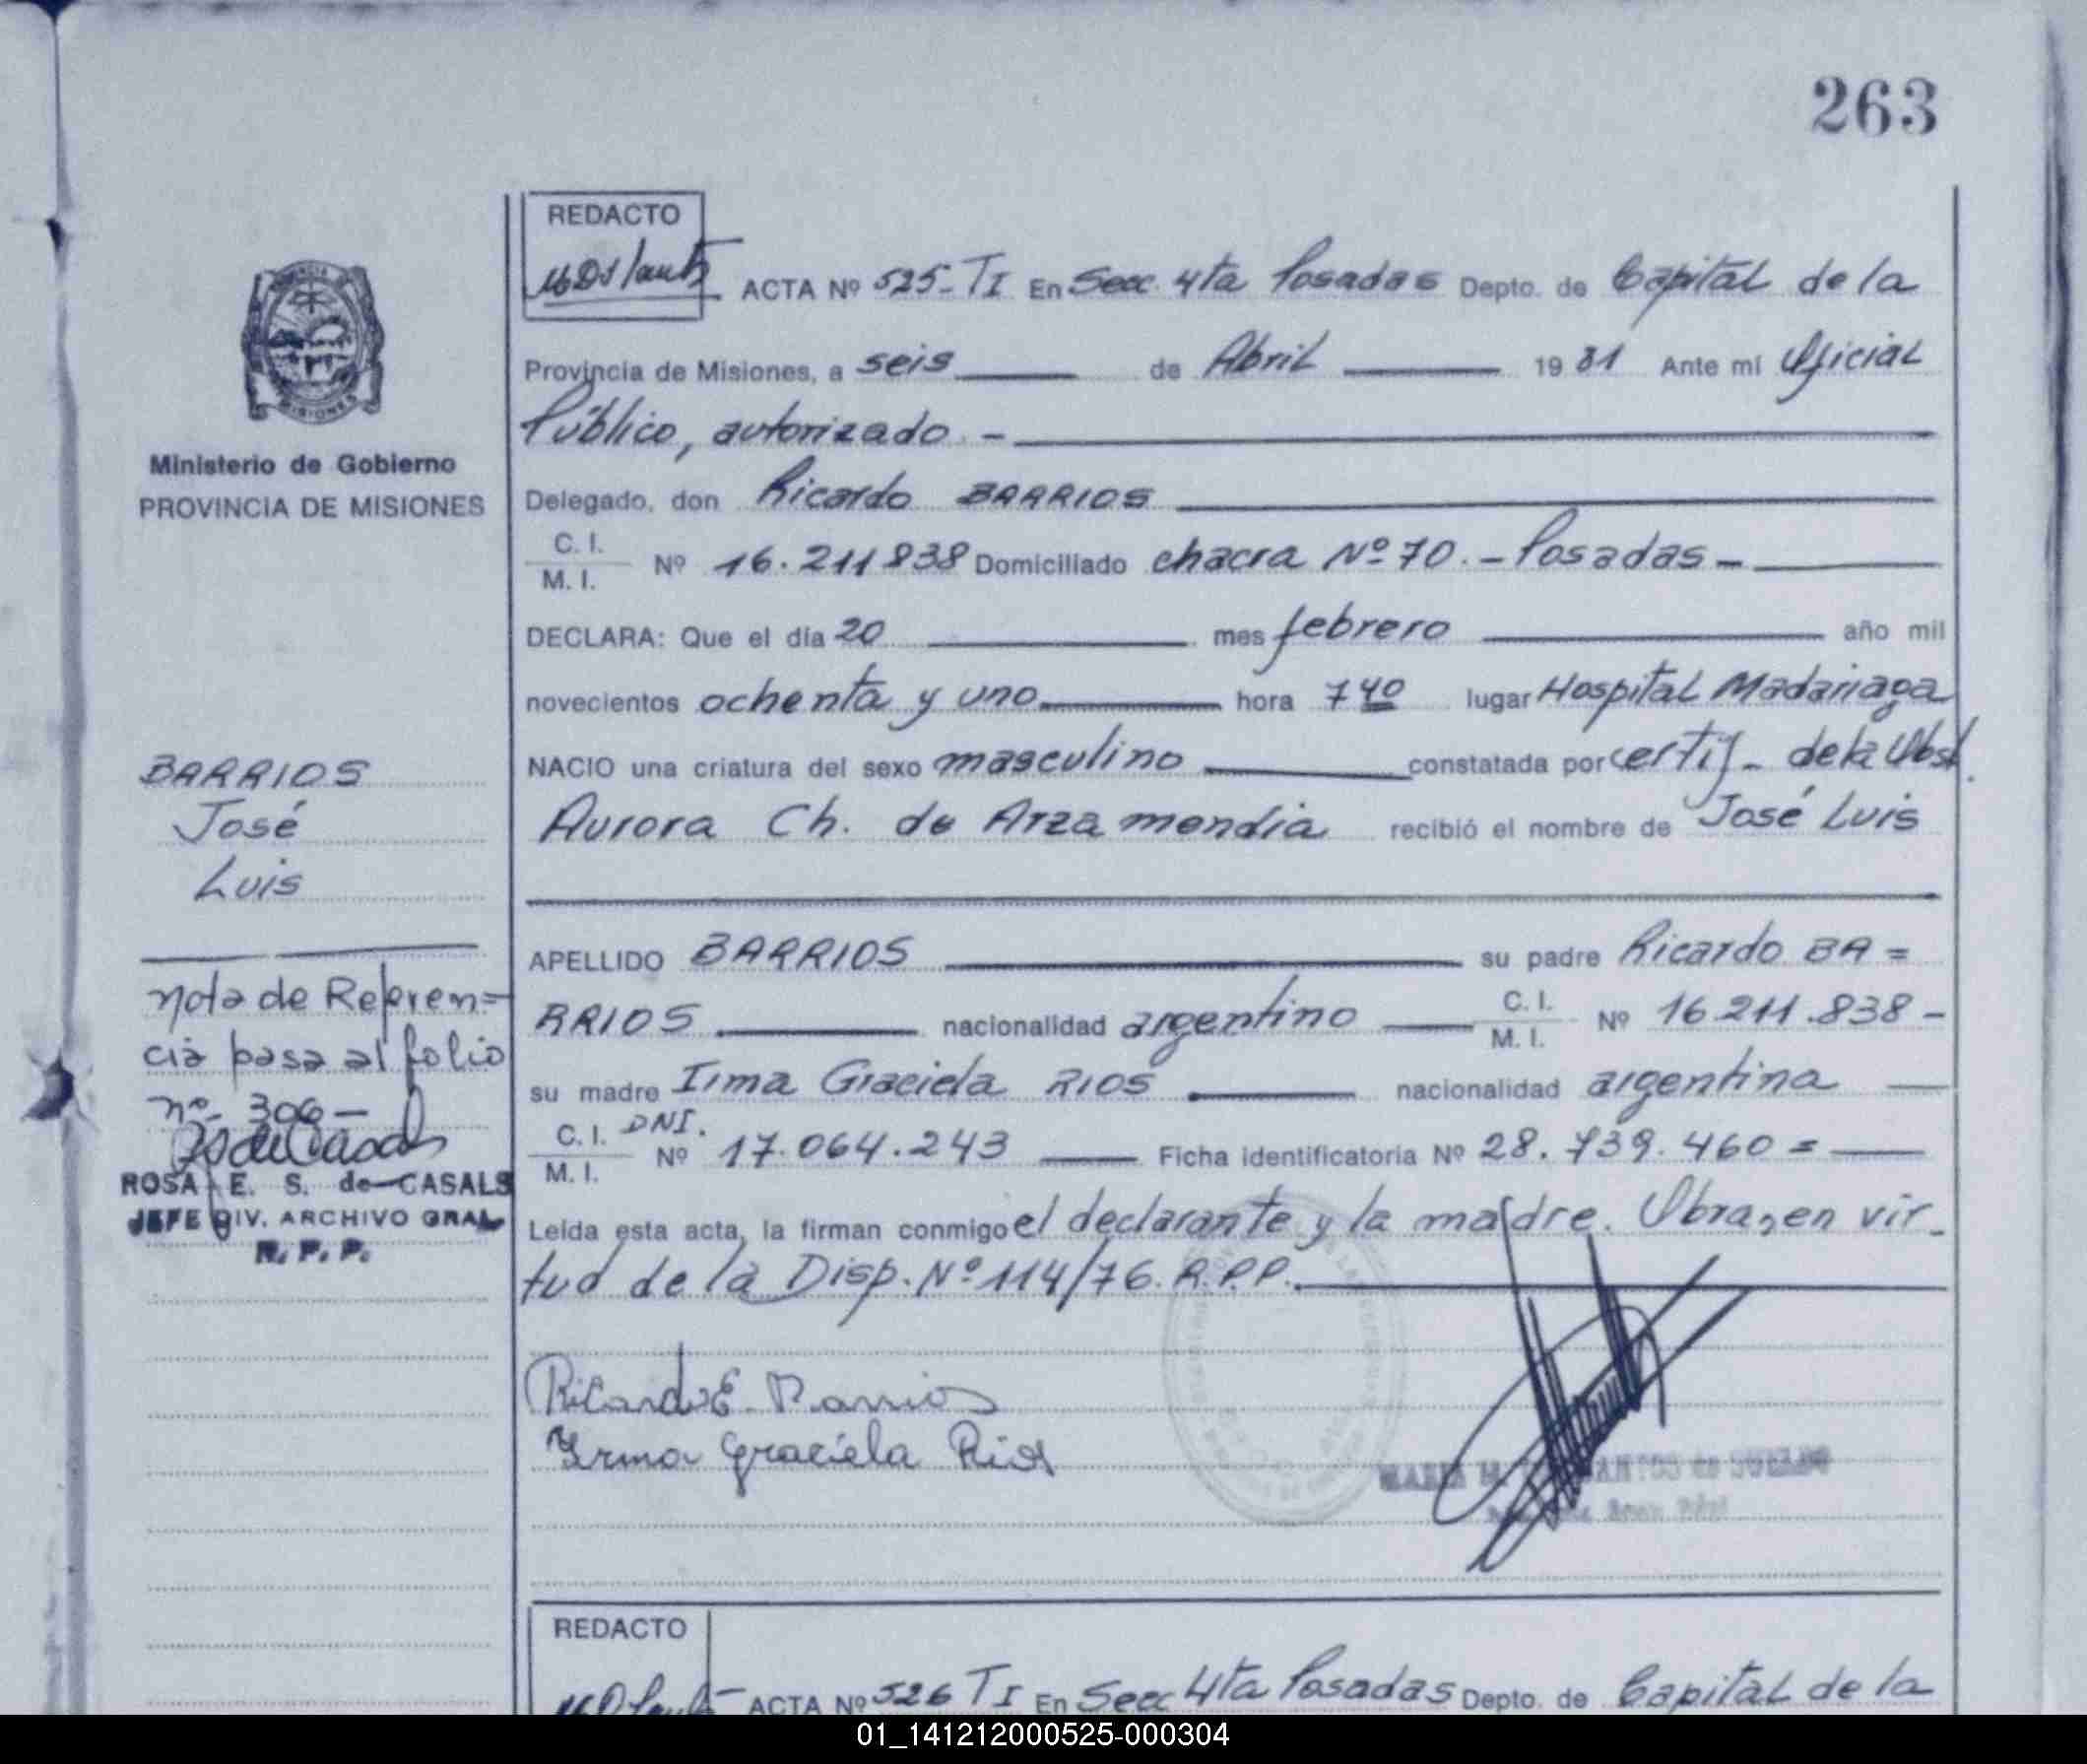 263
REDACTO
ACTA Nº 525-TI En Secc. 4ta Posadas Depto. de Capital de la
Provincia de Misiones, a seis de Abril 1981 Ante mi Oficial
Público, autorizado.-
Delegado, don Ricardo BARRIOS
C. I.
M. I. Nº 16.211838 Domiciliado chacra Nº 70.- Posadas-
DECLARA: Que el día 20 mes febrero año mil
novecientos ochenta y uno hora 7 40 lugar Hospital Madariaga
NACIO una criatura del sexo masculino constatada por certif- de la Obst.
Aurora Ch. de Arzamendia recibió el nombre de José Luis
APELLIDO BARRIOS su padre Ricardo BA=
RRIOS nacionalidad argentino C. I. M. I. Nº 16 211.838-
su madre Irma Graciela RIOS nacionalidad argentina
C. I. DNI.
M. I. Nº 17.064.243 Ficha identificatoria Nº 28.739.460=
Leída esta acta, la firman conmigo el declarante y la madre. Obra, en vir-
tud de la Disp. Nº 114/76. R.P.P.
Ricardo E. Barrios
Irma Graciela Rios
Ministerio de Gobierno
PROVINCIA DE MISIONES
BARRIOS
José
Luis
Nota de Referen=
cia pasa al folio
nº- 306-
ROSA E. S. de CASALS
JEFE DIV. ARCHIVO GRAL
R. P. P.
REDACTO
ACTA Nº 526 TI En Secc 4ta Posadas Depto. de Capital de la
01_141212000525-000304